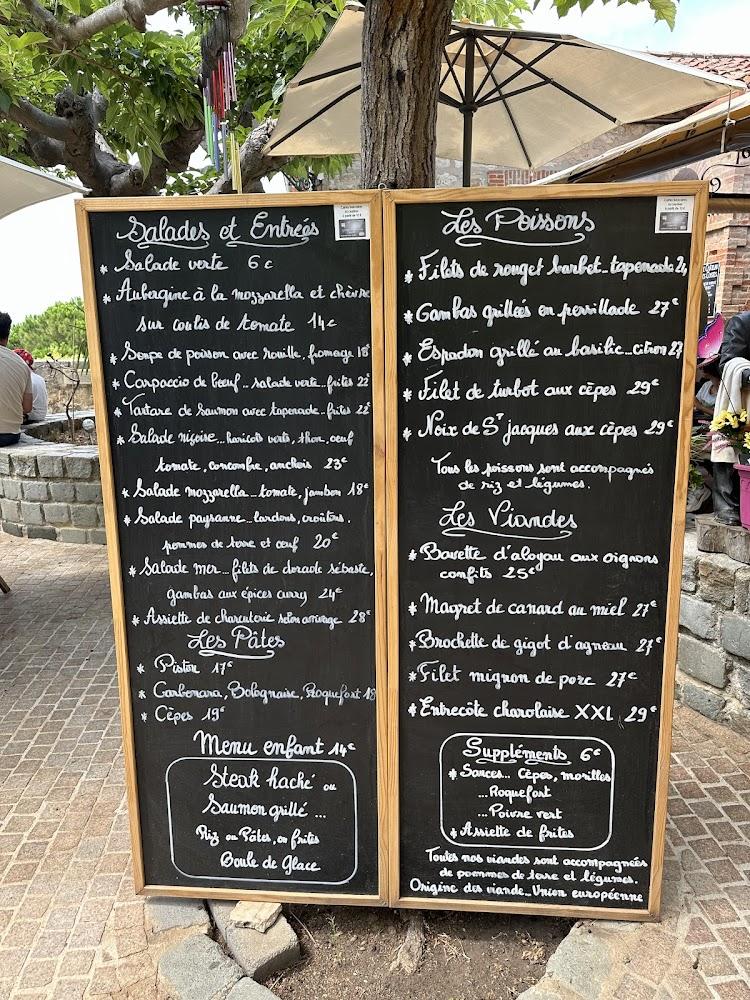 Salades et Entrées
* Salade verte 6€
* Aubergine à la mozzarella et chèvre
sur coulis de tomate 14€
* Soupe de poisson avec rouille, fromage 18€
* Carpaccio de boeuf.. salade verte..frites 22€
* Tartare de Saumon avec tapenade..frites 22€
* Salade niçoise...haricots verts, thon, oeuf
tomate, concombre, anchois 23€
* Salade mozzarella...tomate, jambon 18€
* Salade paysanne...lardons, croûtons,
pommes de terre et oeuf 20€
* Salade mer...filets de dorade sébaste,
gambas aux épices curry 24€
* Assiette de charcuterie selon arrivage 28€
Les Pâtes
* Pistou 17€
* Carbonara, Bolognaise, Roquefort 18
* Cèpes 19€
Menu enfant 14€
Steak haché ou
Saumon grillé ...
Riz ou Pâtes, ou frites
Boule de Glace
Les Poissons
* Filets de rouget barbet..tapenade 24
* Gambas grillées en persillade 27€
* Espadon grillé au basilic...citron 27
* Filet de turbot aux cèpes 29€
* Noix de St jacques aux cèpes 29€
Tous les poissons sont accompagnés
de riz et légumes.
Les Viandes
* Bavette d'aloyau aux oignons
confits 25€
* Magret de canard au miel 27€
* Brochette de gigot d'agneau 27€
* Filet mignon de porc 27€
* Entrecôte charolaise XXL 29€
Suppléments 6€
* Sauces... Cèpes, morilles
...Roquefort
...Poivre vert
* Assiette de frites
Toutes nos viandes sont accompagnées
de pommes de terre et légumes.
Origine des viande...Union européenne